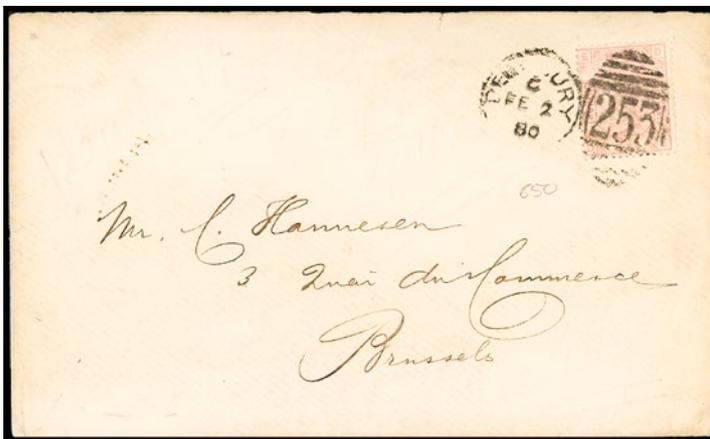 C
FE 2
80
253
650
Mr. C. Hannesen
3 Quai du Commerce
Brussels